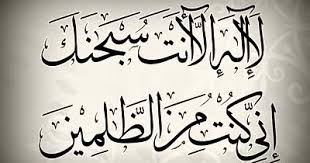 لَا إِلَٰهَ إِلَّا أَنْتَ سُبْحَٰنَكَ
إِنِّي كُنْتُ مِنَ الظَّٰلِمِينَ